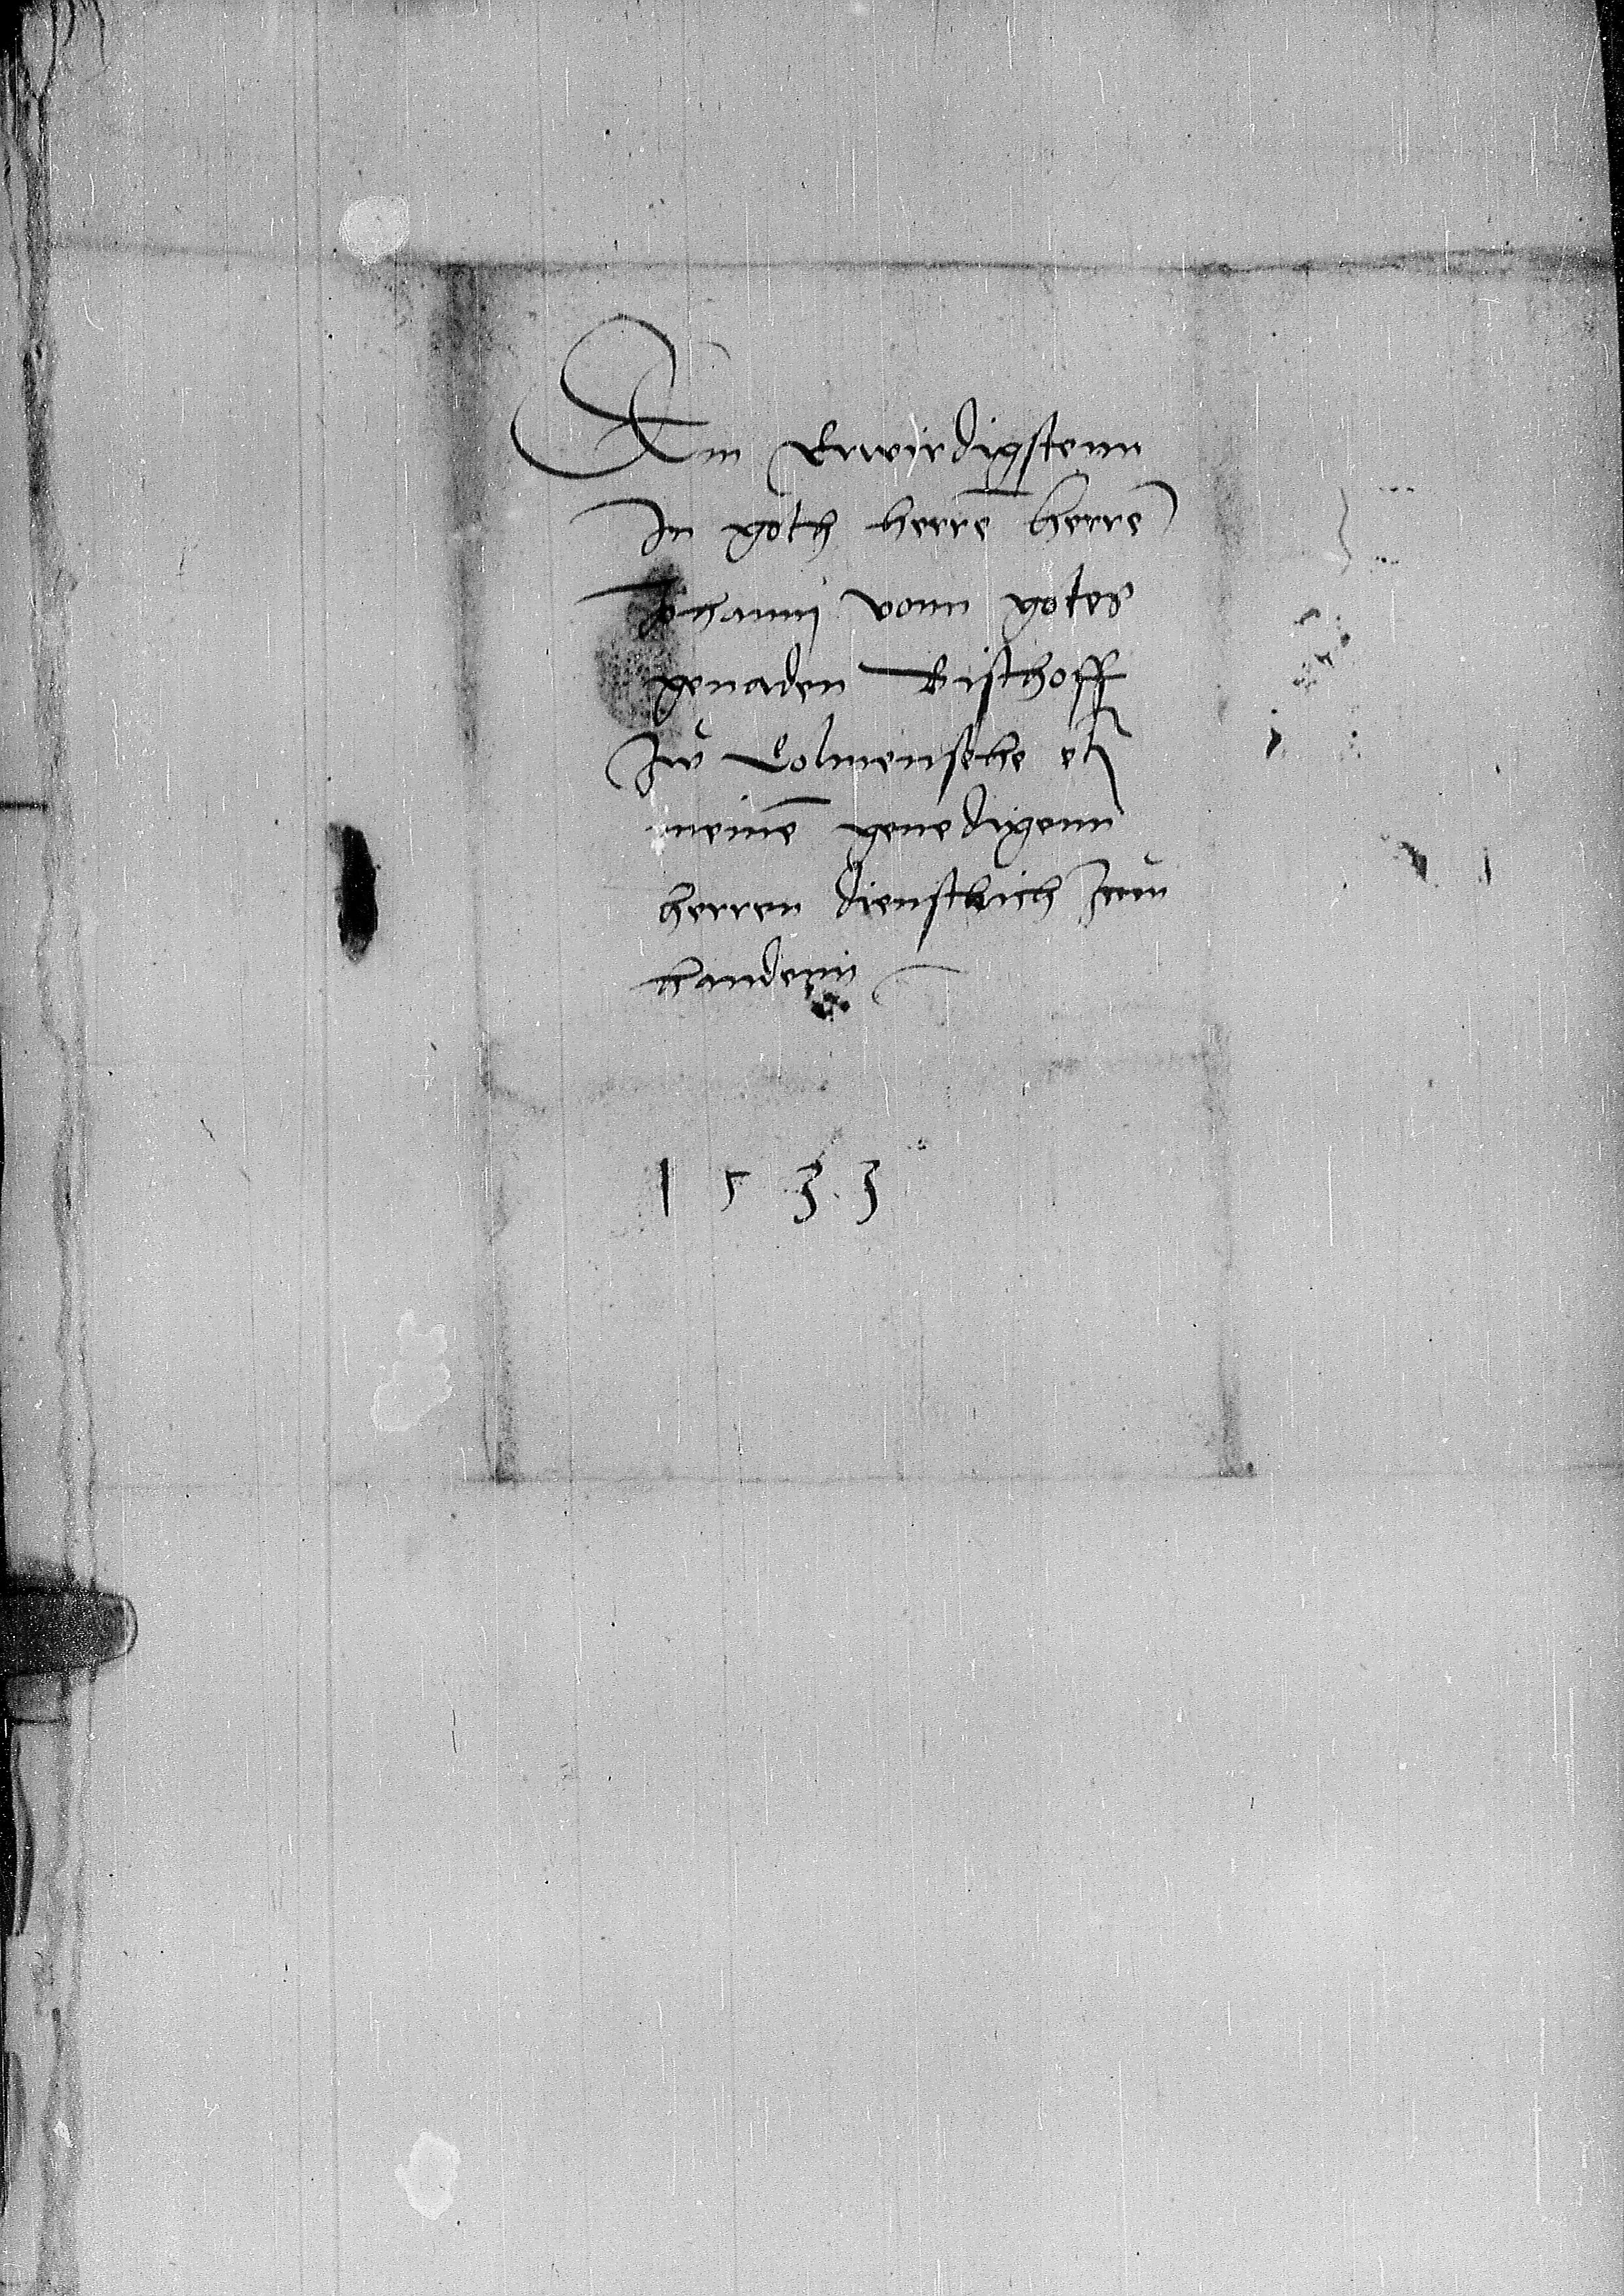 Am Erwirdigstenn
In goth herrē herrē
Johanni vonn gotes
genaden Bischoff
Zw Colmensehe etc
meinē genedigenn
herren dienstlich zun
handenn
1533